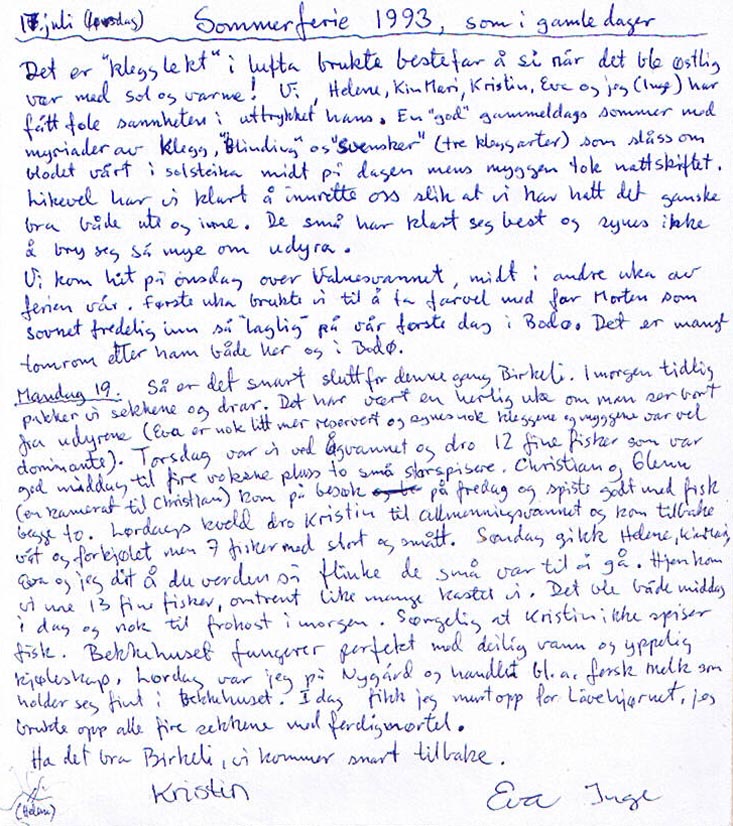 17. juli (lørdag) Sommerferie 1993, som i gamle dager
Det er "klegglekt" i lufta brukte bestefar å si når det ble østlig
vær med sol og varme! Vi, Helene, Kim Mari, Kristin, Eva og jeg (Inge) har
fått føle sannheten i uttrykket hans. En "god" gammeldags sommer med
myriader av klegg, "Blinding" og "Svensker" (tre kleggarter) som slåss om
blodet vårt i solsteika midt på dagen mens myggen tok nattskiftet.
Likevel har vi klart å innrette oss slik at vi har hatt det ganske
bra både ute og inne. De små har klart seg best og synes ikke
å bry seg så mye om udyra.
Vi kom hit på onsdag over Valnesvannet, midt i andre uka av
ferien vår. Første uka brukte vi til å ta farvel med far Morten som
sovnet fredelig inn så "laglig" på vår første dag i Bodø. Det er mangt
tomrom etter ham både her og i Bodø.
Mandag 19. Så er det snart slutt for denne gang Birkeli. I morgen tidlig
pakker vi sekkene og drar. Det har vært en herlig uke om man ser bort
fra udyrene (Eva er nok litt mer reservert og synes nok kleggene og myggene var vel
dominante). Torsdag var vi ved Ågvannet og dro 12 fine fisker som var
god middag til fire voksne pluss to små storspisere. Christian og Glenn
(en kamerat til Christian) kom på besøk på fredag og spiste godt med fisk
begge to. Lørdags kveld dro Kristin til allmenningsvannet og kom tilbake
våt og forkjølet men 7 fisker med stort og smått. Søndag gikk Helene, Kim Mari,
Eva og jeg dit å du verden så flinke de små var til å gå. Hjem kom
vi me 13 fine fisker, omtrent like mange kastet vi. Det ble både middag
i dag og nok til frokost i morgen. Sørgelig at Kristin ikke spiser
fisk. Bekkehuset fungerer perfekt med deilig vann og ypperlig
kjøleskap. Lørdag var jeg på Nygård og handlet bl.a. fersk melk som
holder seg fint i bekkehuset. I dag fikk jeg murt opp for Låvehjørnet, jeg
brukte opp alle fire sekkene med ferdigmørtel.
Ha det bra Birkeli, vi kommer snart tilbake.
Kristin Eva Inge
(Helene)